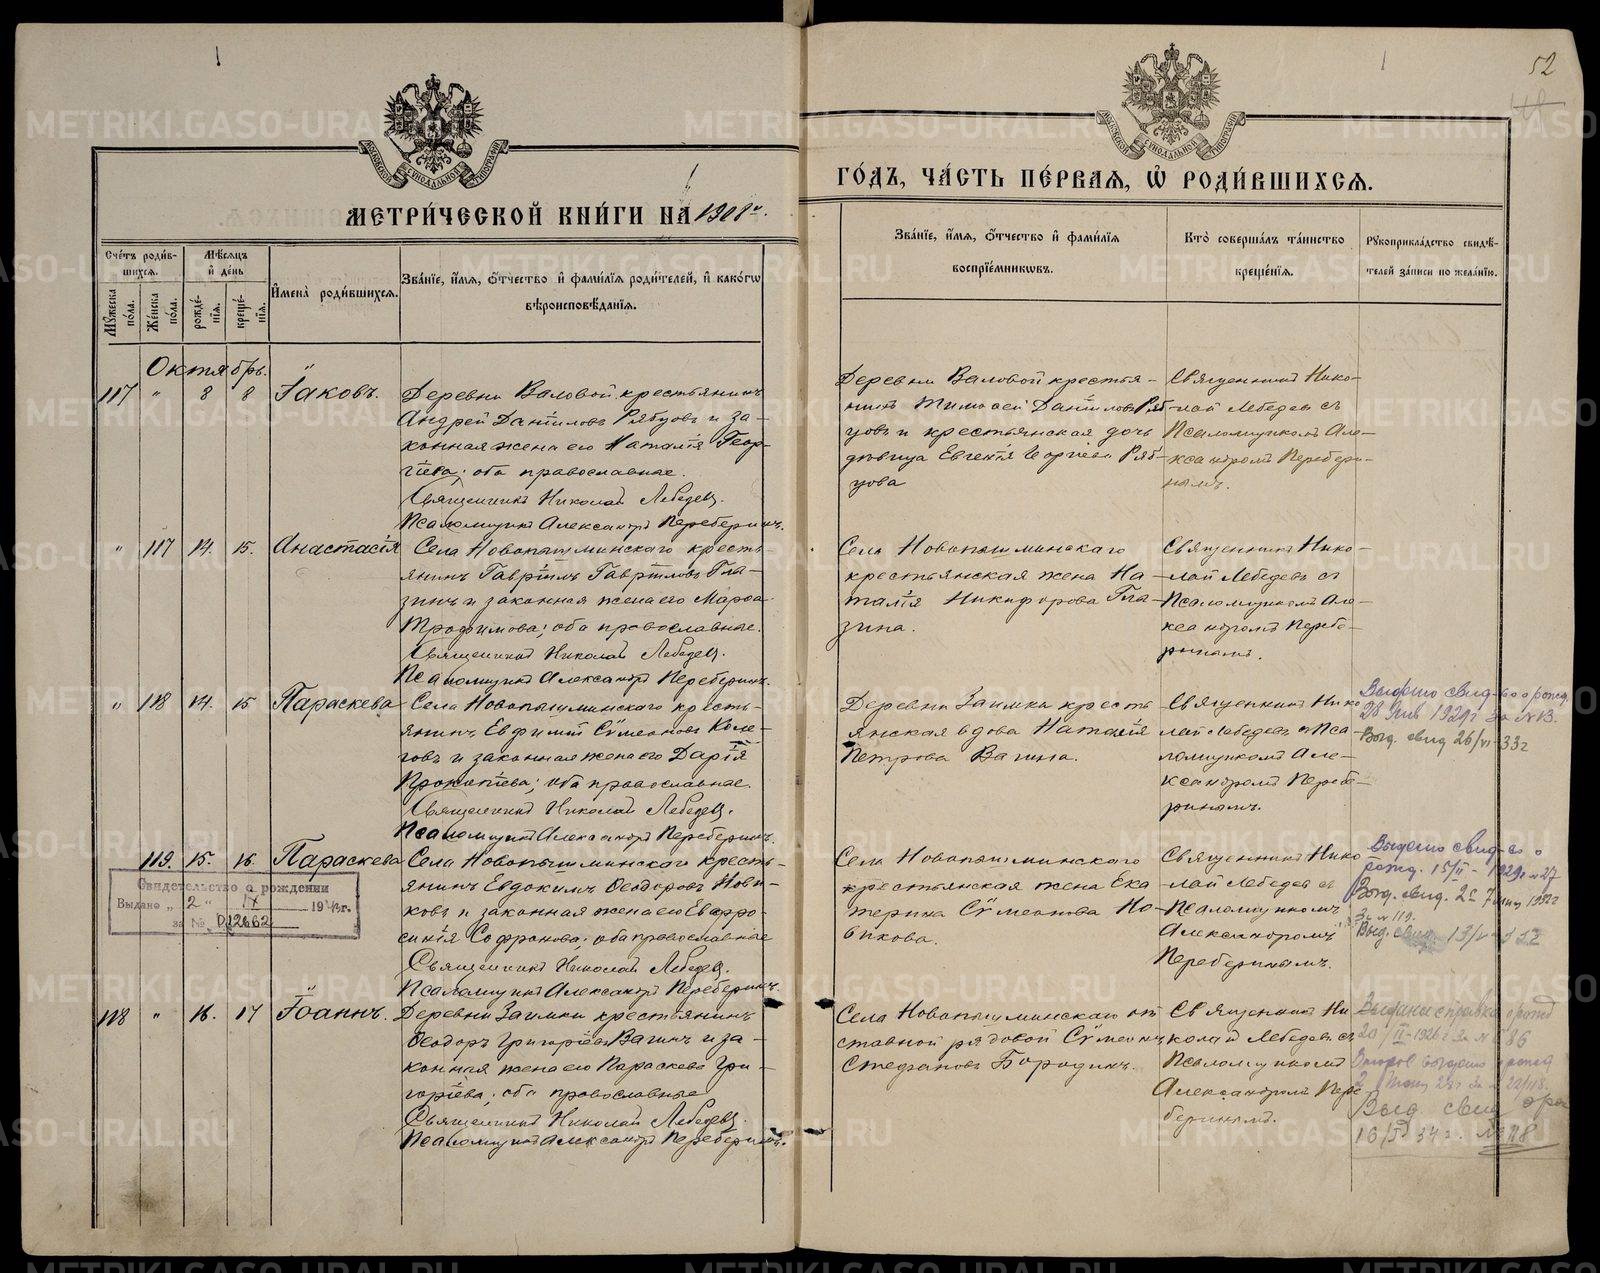 52
МЕТРИ́ЧЕСКОЙ КНИ́ГИ НА 1908 г.
ГО́ДЪ, ЧА́СТЬ ПЕ́РВАЯ, Ѡ҆ РОДИ́ВШИХСЯ.
Сче́тъ роди́в-
шихся.
Мѣ́сяцъ
и҆ де́нь
Мꙋ́жеска по́ла.
Же́нска по́ла.
рожде́-
нїя.
креще́-
нїя.
И҆мена̀ роди́вшихся.
Зва́нїе, и҆́мя, ѻ҆́тчество и҆ фами́лїя роди́телей, и҆ како́гѡ
вѣроисповѣ́данїя.
Зва́нїе, и҆́мя, ѻ҆́тчество и҆ фами́лїя
воспрїе́мникѡвъ.
Кто̀ соверша́лъ та́инство
креще́нїя.
Рꙋкоприкла́дство свидѣ́-
телей за́писи по жела́нїю.
Октябрь.
117 " 8 8 Іаковъ.
Деревни Валовой крестьянинъ
Андрей Даніиловъ Рябцовъ и за-
конная жена его Наталія Геор-
гіева; оба православные.
Священникъ Николай Лебедевъ.
Псаломщикъ Александръ Переберинъ.
Деревни Валовой крестья-
нинъ Тимоѳей Даніиловъ Ряб-
цовъ и крестьянская дочь
дѣвица Евгенія Георгіева Ряб-
цова
Священникъ Нико-
лай Лебедевъ съ
Псаломщикомъ Але-
ксандромъ Перебери-
нымъ.
" 117 14. 15. Анастасія
Села Новопышминскаго кресть-
янинъ Гавріилъ Гавріиловъ Гла-
зинъ и законная жена его Марѳа
Трофимова; оба православные.
Священникъ Николай Лебедевъ.
Псаломщикъ Александръ Переберинъ.
Села Новопышминскаго
крестьянская жена На-
талія Никифорова Гла-
зина.
Священникъ Нико-
лай Лебедевъ съ
Псаломщикомъ Але-
ксандромъ Перебе-
ринымъ.
" 118 14. 15 Параскева
Села Новопышминскаго кресть-
янинъ Евфимій Сѵмеоновъ Коле-
говъ и законная жена его Дарія
Прокопіева; оба православные.
Священникъ Николай Лебедевъ.
Псаломщикъ Александръ Переберинъ.
Деревни Заимки кресть
янская вдова Наталія
Петрова Вагина.
Священникъ Нико
лай Лебедевъ съ Пса-
ломщикомъ Але-
ксандромъ Перебе-
ринымъ.
Выдано свид-во о рожд
28 Янв 1929 г за № 13.
Выд. свид 26/VI-33 г
119. 15. 16. Параскева
Села Новопышминскаго кресть-
янинъ Евдокимъ Ѳеодоровъ Нови-
ковъ и законная жена его Евфро-
синія Софронова; оба православные
Священникъ Николай Лебедевъ.
Псаломщикъ Александръ Переберинъ.
Села Новопышминскаго
крестьянская жена Ека
терина Сѵмеонова Но-
викова.
Священникъ Нико
лай Лебедевъ съ
Псаломщикомъ
Александромъ
Переберинымъ.
Выдано свид-во о
рожд. 15/II - 1929 г № 27
Выд. свид.
за № 119.
Выд. свид.
Свидетельство о рождении
Выдано „ 2 " IX 19 г.
за № 012662
118 " 16. 17 Іоаннъ.
Деревни Заимки крестьянинъ
Ѳеодоръ Григоріевъ Вагинъ и за-
конная жена его Параскева Гри-
горіева; оба православные
Священникъ Николай Лебедевъ.
Псаломщикъ Александръ Переберинъ.
Села Новопышминскаго от
ставной рядовой Сѵмеонъ
Стефановъ Бородинъ.
Священникъ Ни
колай Лебедевъ съ
Псаломщикомъ
Александромъ Пере
беринымъ.
Выдана справка о рожд
20/II-1926 г за № 86
Второе выдано о рожд
Выд. свид о рож
16/VI 34 г. № 118
METRIKI.GASO-URAL.RU